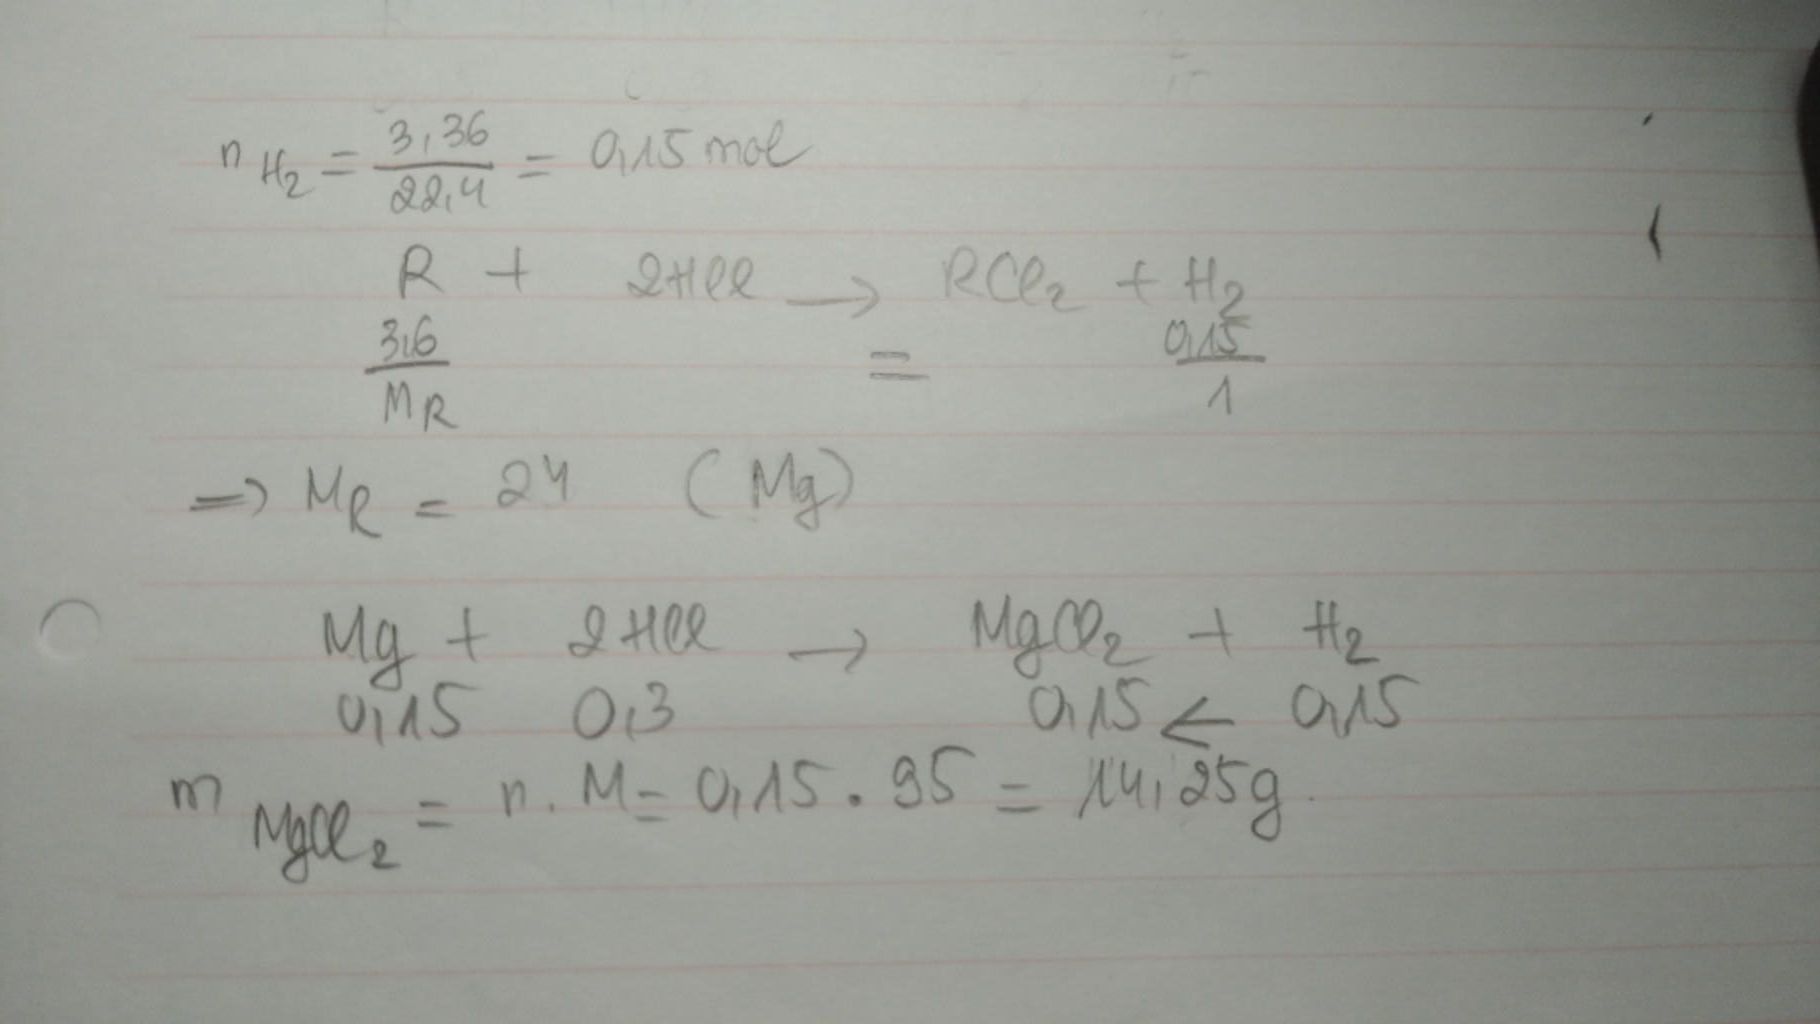 n H₂ = 3,36 / 22,4 = 0,15 mol
R + 2HCl → RCl₂ + H₂
3,6 / M_R = 0,15 / 1
=> M_R = 24 (Mg)
Mg + 2HCl → MgCl₂ + H₂
0,15 0,3 0,15 ← 0,15
m MgCl₂ = n . M = 0,15 . 95 = 14,25g.